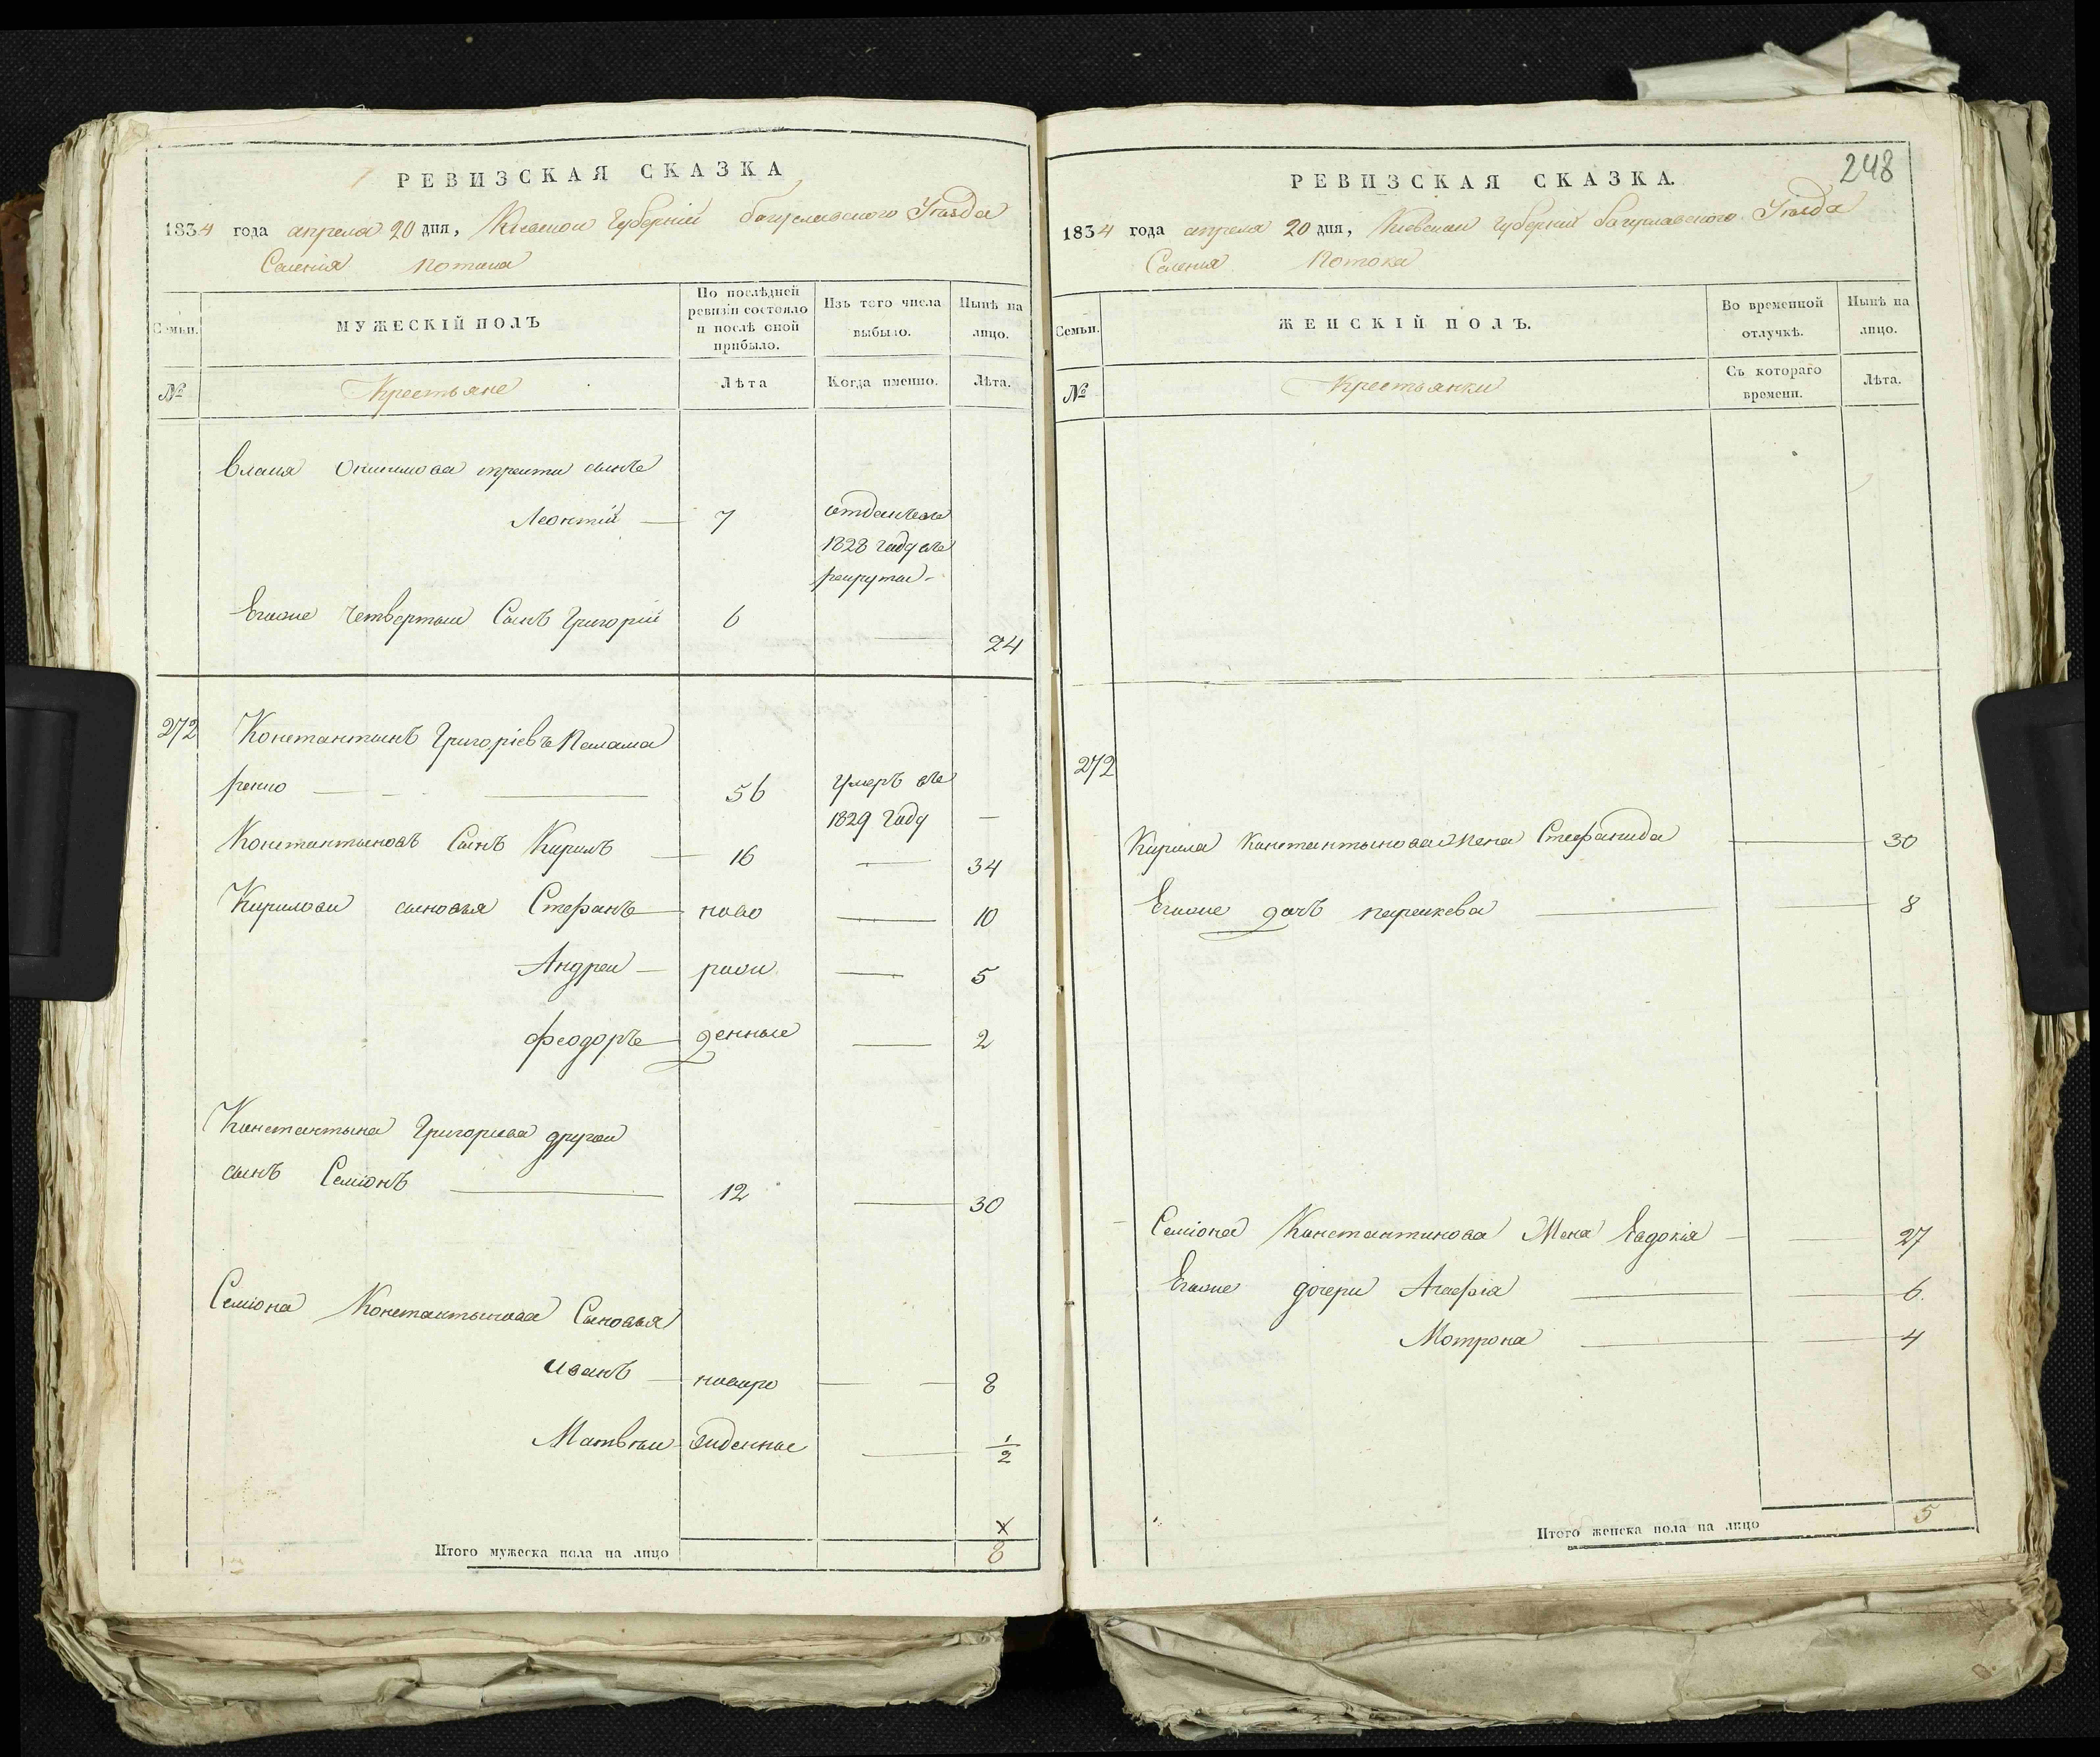 РЕВИЗСКАЯ СКАЗКА
1834 года апреля 20 дня, Киевской Губерніи богуславского Уезда
Селенія Потока
Семьи.
МУЖЕСКІЙ ПОЛЪ
По послѣдней ревизіи состояло и послѣ оной прибыло.
Изъ того числа выбыло.
Нынѣ на лицо.
№
Крестьяне
Лѣта
Когда именно.
Лѣта.
трети сынъ
Леонтій 7 отданъ въ
1828 году въ
рекруты
Егоже четвертыи Сынъ Григорій 6 24
272 Константынъ Григоріевъ
ренко 56 Умеръ въ
1829 Году
Константыновъ Сынъ Кирилъ 16 34
Кириловы сыновья Стефанъ ново 10
Андреи рож 5
феодоръ денные 2
Константына Григориева другои
сынъ Семіонъ 12 30
Семіона Константынова Сыновья
иванъ новоро 8
Матвѣи жденные 1/2
Итого мужеска пола на лицо 8
РЕВИЗСКАЯ СКАЗКА.
248
1834 года апреля 20 дня, Киевской Губерніи богуславского Уезда
Селенія Потока
Семьи.
ЖЕНСКІЙ ПОЛЪ.
Во временной отлучкѣ.
Нынѣ на лицо.
№
Крестьянки
Съ котораго времени.
Лѣта.
272
Кирила Константынова Жена Стефанида 30
Егоже дочъ парескева 8
Семіона Константинова Жена Евдокія 27
Егоже дочери Агафія 6
Мотрона 4
Итого женска пола на лицо 5